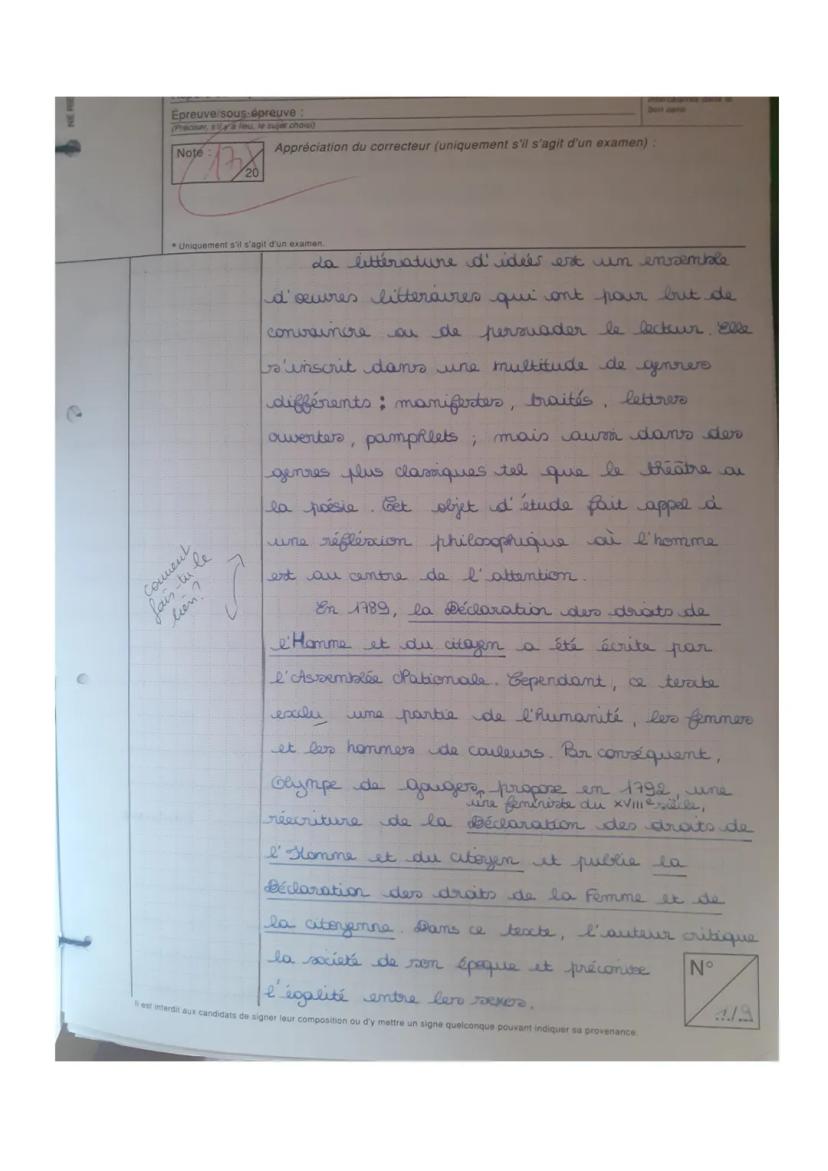 NE RE
Épreuve/sous-épreuve :
(Préciser, s'il y a lieu, le sujet choisi)
bon sens
Note :
17
20
Appréciation du correcteur (uniquement s'il s'agit d'un examen) :
* Uniquement s'il s'agit d'un examen.
La littérature d'idées est un ensemble
d'œuvres litteraires qui ont pour but de
convaincre ou de persuader le lecteur. Elle
s'inscrit dans une multitude de genres
différents : manifestes, traités, lettres
ouvertes, pamphlets ; mais aussi dans des
genres plus classiques tel que le théâtre ou
la poésie. Cet objet d'étude fait appel à
une réfléxion philosophique où l'homme
est au centre de l'attention.
comment
fais-tu le
lien ?
En 1789, la Déclaration des droits de
l'Homme et du citoyen a été écrite par
l'Assemblée Nationale. Cependant, ce texte
exclu une partie de l'humanité, les femmes
et les hommes de couleurs. Par conséquent,
Olympe de Gouges, propose en 1792, une
une féministe du XVIIIe siècle,
réecriture de la Déclaration des droits de
l'Homme et du citoyen et publie la
Déclaration des droits de la Femme et de
la citoyenne. Dans ce texte, l'auteur critique
la société de son époque et préconise
l'égalité entre les sexes.
N°
1/9
Il est interdit aux candidats de signer leur composition ou d'y mettre un signe quelconque pouvant indiquer sa provenance.